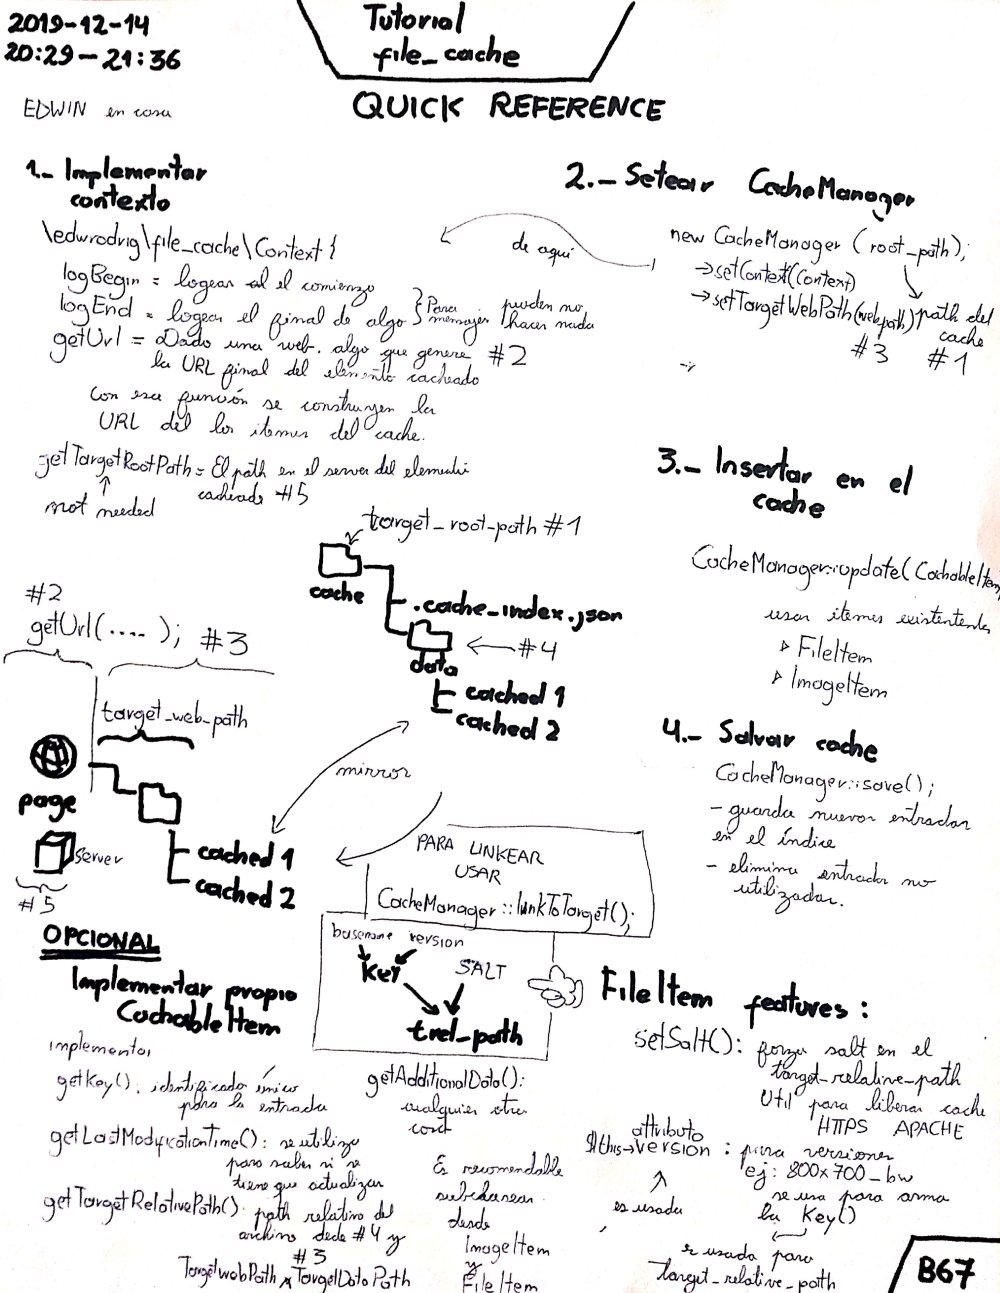 2019-12-14
20:29-21:36
Tutorial
file_cache
EDWIN en casa
QUICK REFERENCE
1.- Implementar
contexto
\edwrodrig\file_cache\Context {
logBegin = logear al el comienzo
logEnd = logear el final de algo
} Para
mensajes
pueden no
hacer nada
getUrl = Dado una web. algo que genere #2
la URL final del elemento cacheado
con esa función se construyen la
URL del los itemes del cache.
getTargetRootPath = El path en el server del elemento
cacheado #5
not needed
2.- Setear CacheManager
de aquí
new CacheManager (root_path);
->setContext(Context)
->setTargetWebPath(webpath)
path del
cache
#3 #1
3.- Insertar en el
cache
CacheManager::update(CachableItem
usar itemes existententes
FileItem
ImageItem
target_root-path #1
cache
.cache_index.json
data
#4
cached 1
cached 2
#2
getUrl(....); #3
target_web_path
page
server
#5
cached 1
cached 2
mirror
4.- Salvar cache
CacheManager::save();
- guarda nuevas entradas
en el índice
- elimina entrada no
utilizadas.
PARA LINKEAR
USAR
CacheManager::linkToTarget();
basename version
key SALT
trel_path
OPCIONAL
Implementar propio
CachableItem
implementar
getKey(): identificador único
para la entrada
getLastModificationTime(): se utiliza
para saber si se
tiene que actualizar
getTargetRelativePath(): path relativo del
archivo dede #4 y
#3
TargetWebPath y TargetDataPath
getAdditionalData():
cualquier otra
cosa
Es recomendable
subclasear
desde
ImageItem
y
FileItem
FileItem features:
setSalt(): forza salt en el
target_relative_path
Util para liberar cache
HTTPS APACHE
atributo
$this->version: para versiones
ej: 800x700_bw
se usa para arma
la Key()
es usada
es usada para
target_relative_path
B67